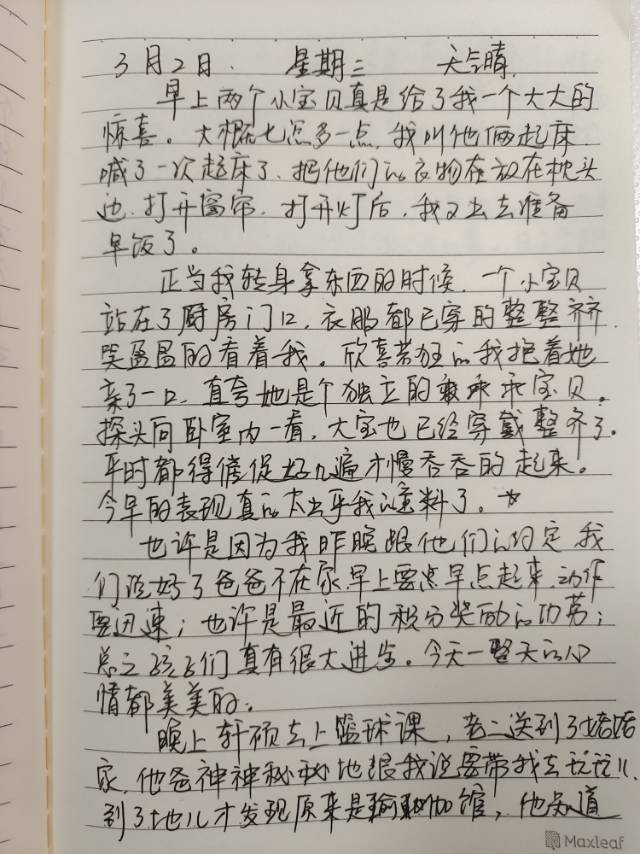 3月2日. 星期三 天气晴.
早上两个小宝贝真是给了我一个大大的
惊喜。大概七点多一点,我叫他俩起床
喊了一次起床了.把他们的衣物在放在枕头
边.打开窗帘.打开灯后,我又出去准备
早饭了。
正当我转身拿东西的时候,一个小宝贝
站在了厨房门口,衣服都已穿的整整齐齐.
笑盈盈的看着我。欣喜若狂的我抱着她
亲了一口,直夸她是个独立的乖乖宝贝。
探头向卧室内一看,大宝也已经穿戴整齐了.
平时都得催促好几遍才慢吞吞的起来。
今早的表现真的太出乎我的意料了。
也许是因为我昨晚跟他们的约定 我
们说好了爸爸不在家早上要早点起来,动作
要迅速;也许是最近的积分奖励的功劳;
总之孩子们真有很大进步。今天一整天的心
情都美美的.
晚上轩硕去上篮球课,老二送到了姥姥
家,他爸神神秘秘地跟我说要带我去玩玩儿,
到了地儿才发现原来是瑜伽馆,他知道
Maxleaf